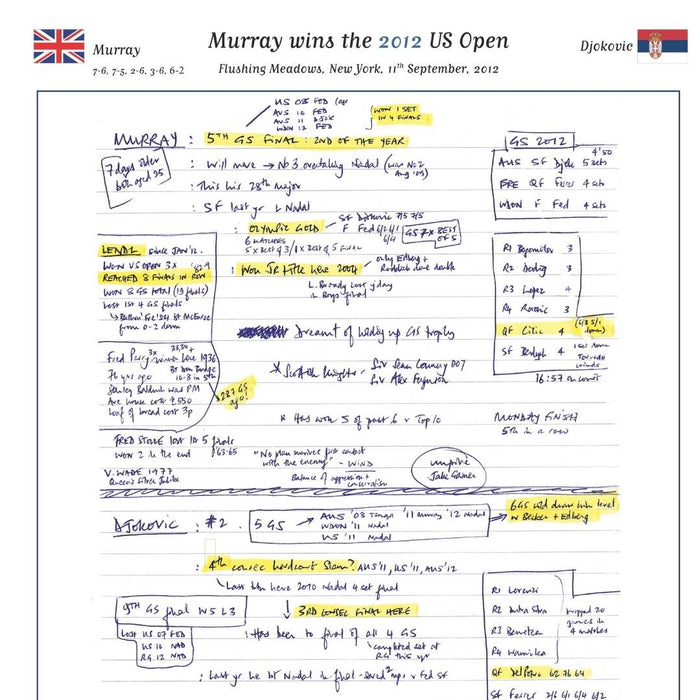 Murray wins the 2012 US Open
Murray
Djokovic
7-6, 7-5, 2-6, 3-6, 6-2
Flushing Meadows, New York, 11th September, 2012
US 08 FED
AUS 10 FED
AUS 11 DJOK
WDON 12 FED
WON 1 SET
IN 4 FINALS
MURRAY : 5TH GS FINAL : 2ND OF THE YEAR
7 days older
both aged 25
: Will move → No 3 overtaking Nadal (was No 2
Aug '09)
: This his 28th major
: SF last yr L Nadal
: OLYMPIC GOLD
SF Djokovic 7/5 7/5
F Fed 6/2 6/1
6/4
GS 7 x BEST
OF 5
6 MATCHES
5 x BEST of 3 / 1 x BEST of 5 FINAL
: Won JR title here 2004
only Edberg +
Roddick done double
L. Broady lost yday
in Boys final
Dreamt of holding up GS trophy
* Scottish Knights - Sir Sean Connery 007
Sir Alex Ferguson
* Has won 5 of past 6 v Top 10
"No plan survives first contact
with the enemy" - WIND
Balance of aggression +
umpire
Jake Garner
GS 2012
4'50
AUS SF Djok 5 sets
FRE QF Ferrer 4 sets
WDON F Fed 4 sets
R1 Bogomolov 3
R2 Dodig 3
R3 Lopez 4
R4 Raonic 3
QF Cilic 4 (6/3 5/1
down)
SF Berdych 4
1 set down
Tornado
winds
16:57 on court
MONDAY FINISH
5th in a row
LENDL since JAN '12.
WON US OPEN 3x
REACHED 8 FINALS IN ROW
WON 8 GS TOTAL (19 finals)
Lost 1st 4 GS finals
from 0-2 down
Fred Perry 3x winner here 1936
33, 34 +
Bt Don Budge
76 yrs ago 10-8 in 5th
Stanley Baldwin was PM
Ave house cost £550
Loaf of bread cost 3p
287 GS
ago!
FRED STOLLE lost 1st 5 finals
WON 2 in the end
V. WADE 1977
Queen's Silver Jubilee
DJOKOVIC : #2. 5 GS → AUS '08 Tsonga '11 Murray '12 Nadal
WDON '11 Nadal
US '11 Nadal
6 GS wld draw him level
w Becker + Edberg
: 4th consec hardcourt Slam? AUS '11, US '11, AUS '12
Last time here 2010 Nadal 4 set final
9TH GS final W5 L3
LOST US 07 FED
US 10 NAD
RG 12 NAD
3RD CONSEC FINAL HERE
: Has been to final of all 4 GS
completed set at
RG this yr
: Last yr he bt Nadal in final - saved 2 mps v Fed SF
R1 Lorenzi
R2 Dutra Silva
R3 Benneteau
R4 Wawrinka
dropped 20
games in
4 matches
QF Del Potro 62 76 64
SF Ferrer 2/6 6/1 6/4 6/2